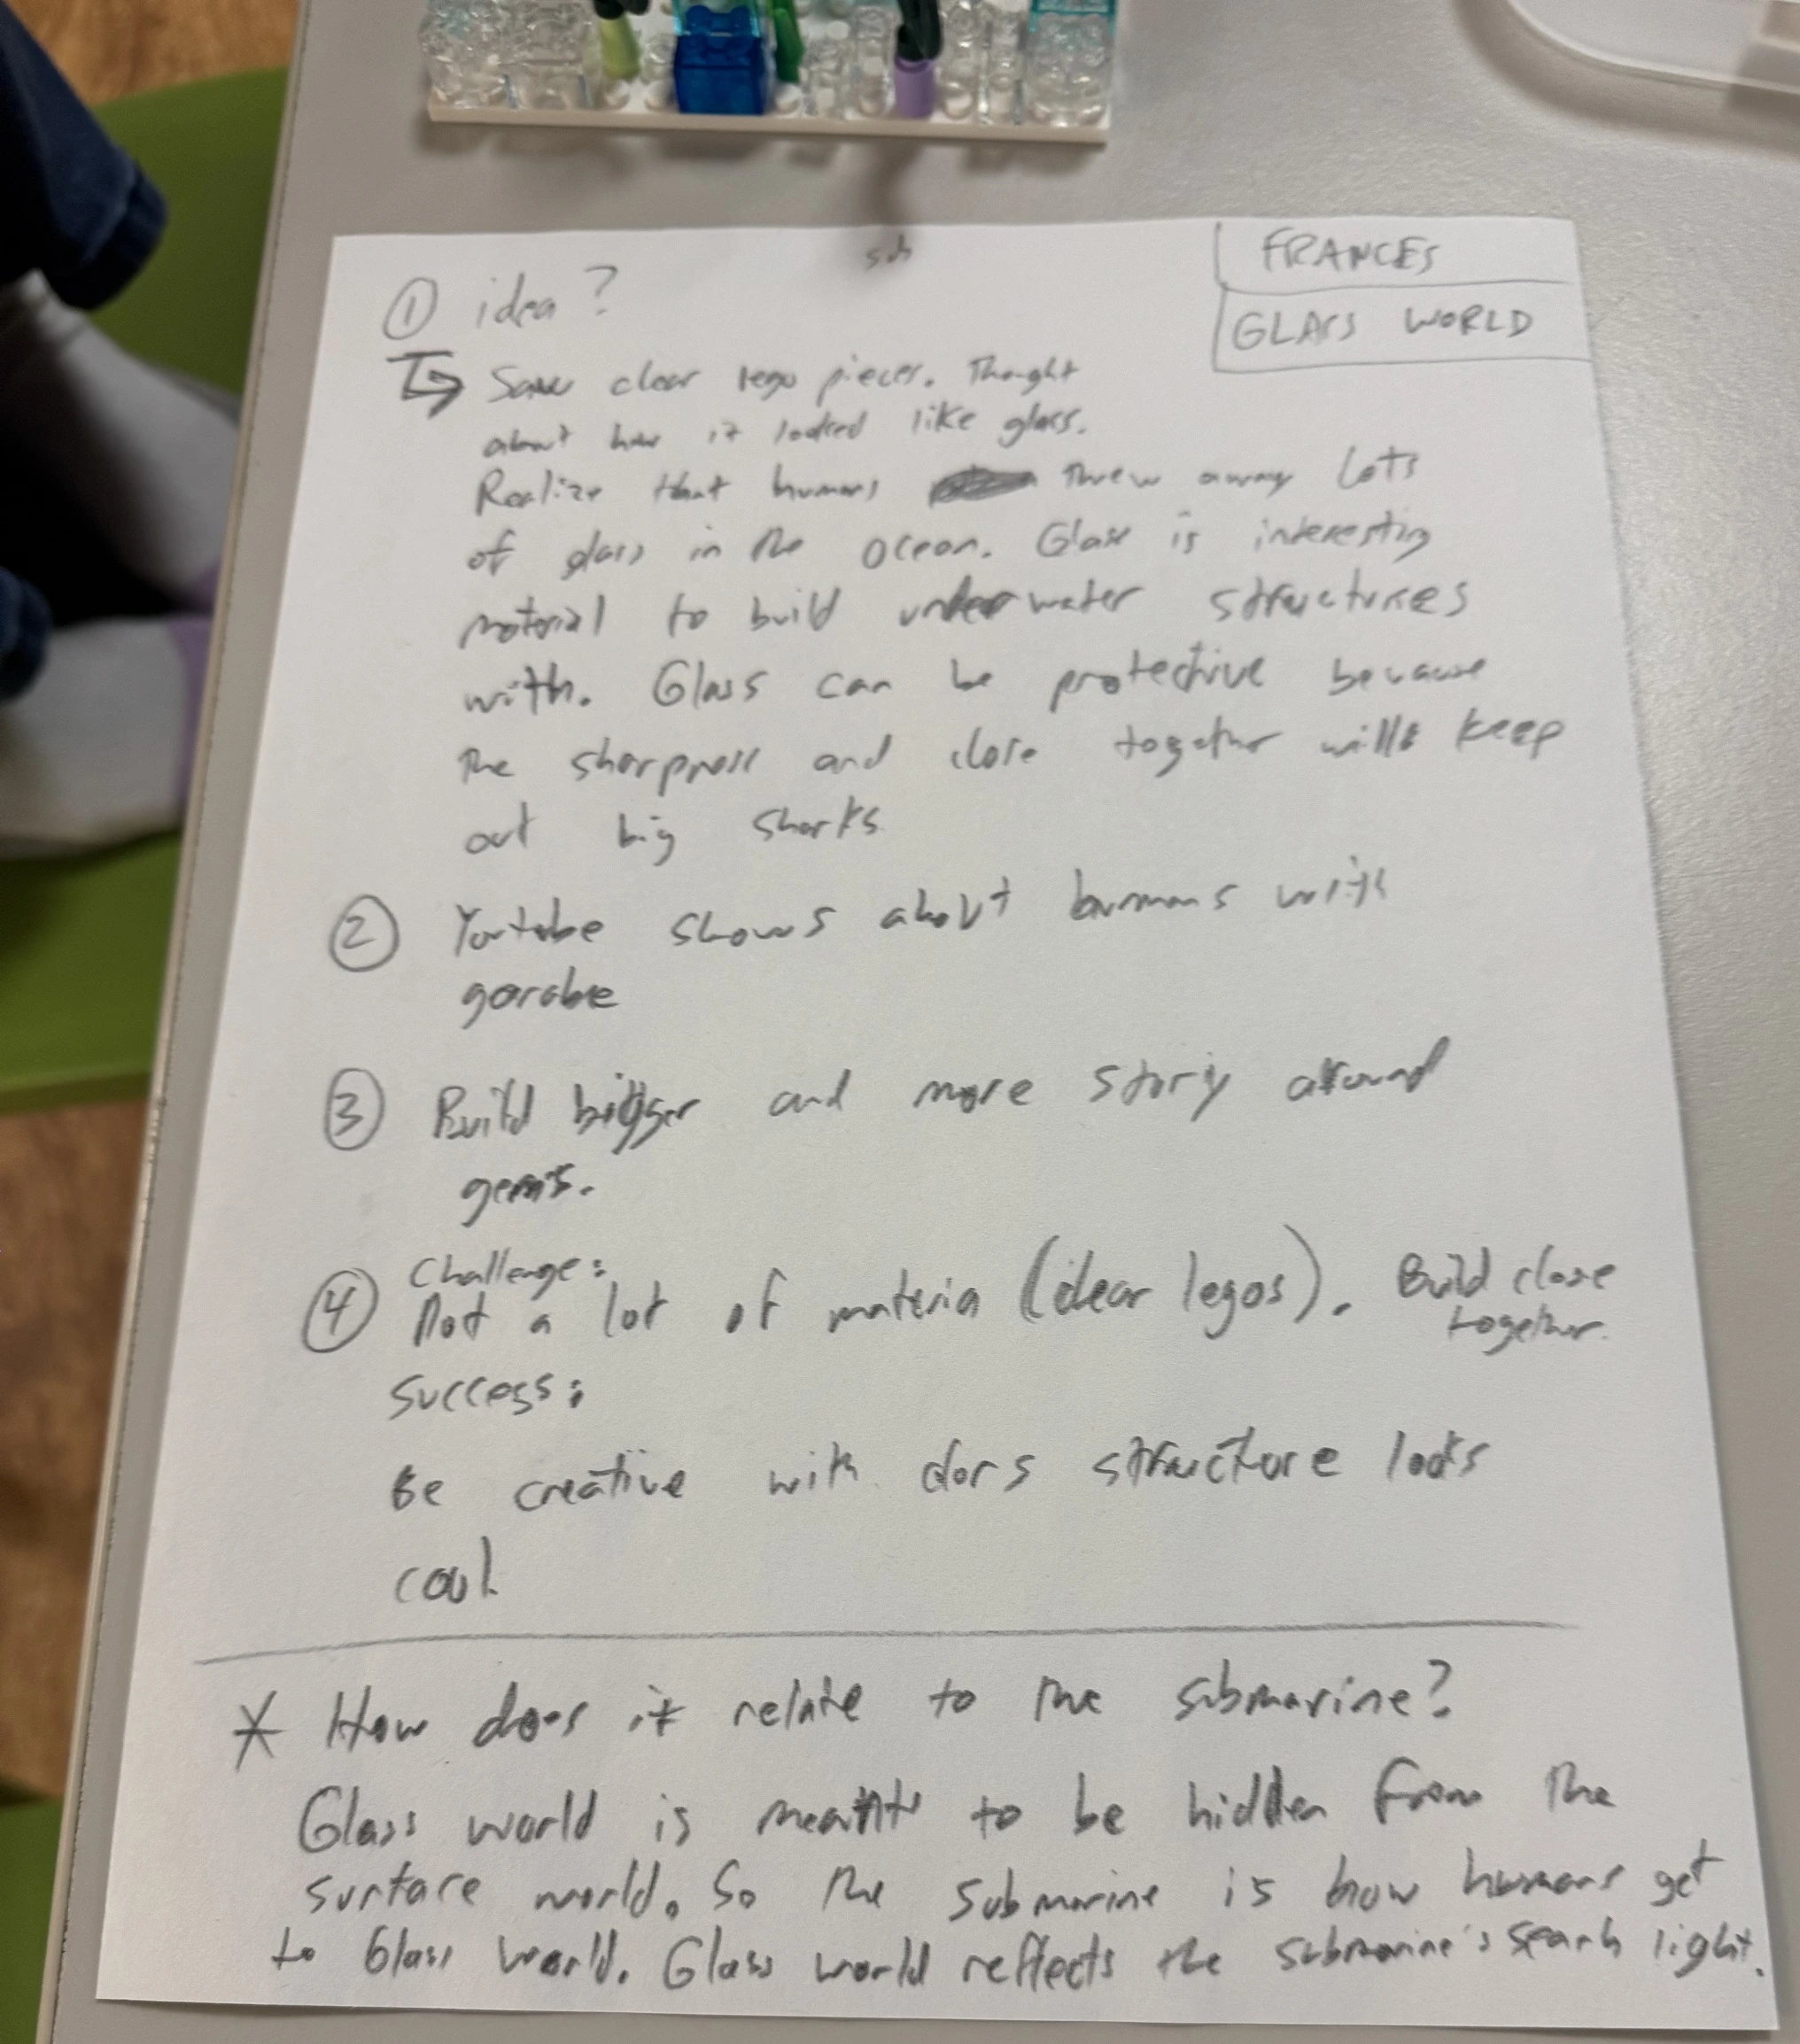 sub
FRANCES
GLASS WORLD
① idea?
↳ Saw clear lego pieces. Thought
about how it looked like glass.
Realize that humans threw away lots
of glass in the ocean. Glass is interesting
material to build underwater structures
with. Glass can be protective because
the sharpness and close together will keep
out big sharks
② Youtube shows about humans with
garabe
③ Build bigger and more story around
gems.
④ Challenge:
Not a lot of materia (clear legos). Build close
together.
Success:
Be creative with structure looks
cool
* How does it relate to the submarine?
Glass world is meant to be hidden from the
surface world. So the submarine is how humans get
to Glass World. Glass world reflects the submarine's search light.